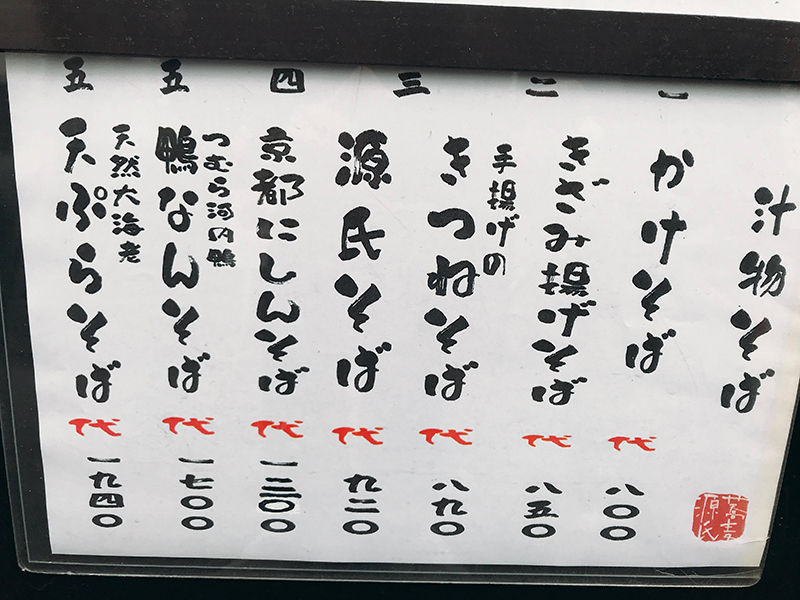 一
二
三
四
五
五
汁物そば
かけそば 代 八〇〇
きざみ揚げそば 代 八五〇
手揚げの
きつねそば 代 八九〇
源氏そば 代 九二〇
京都にしんそば 代 一三〇〇
つむら河内鴨
鴨なんそば 代 一七〇〇
天然大海老
天ぷらそば 代 一九四〇
源氏